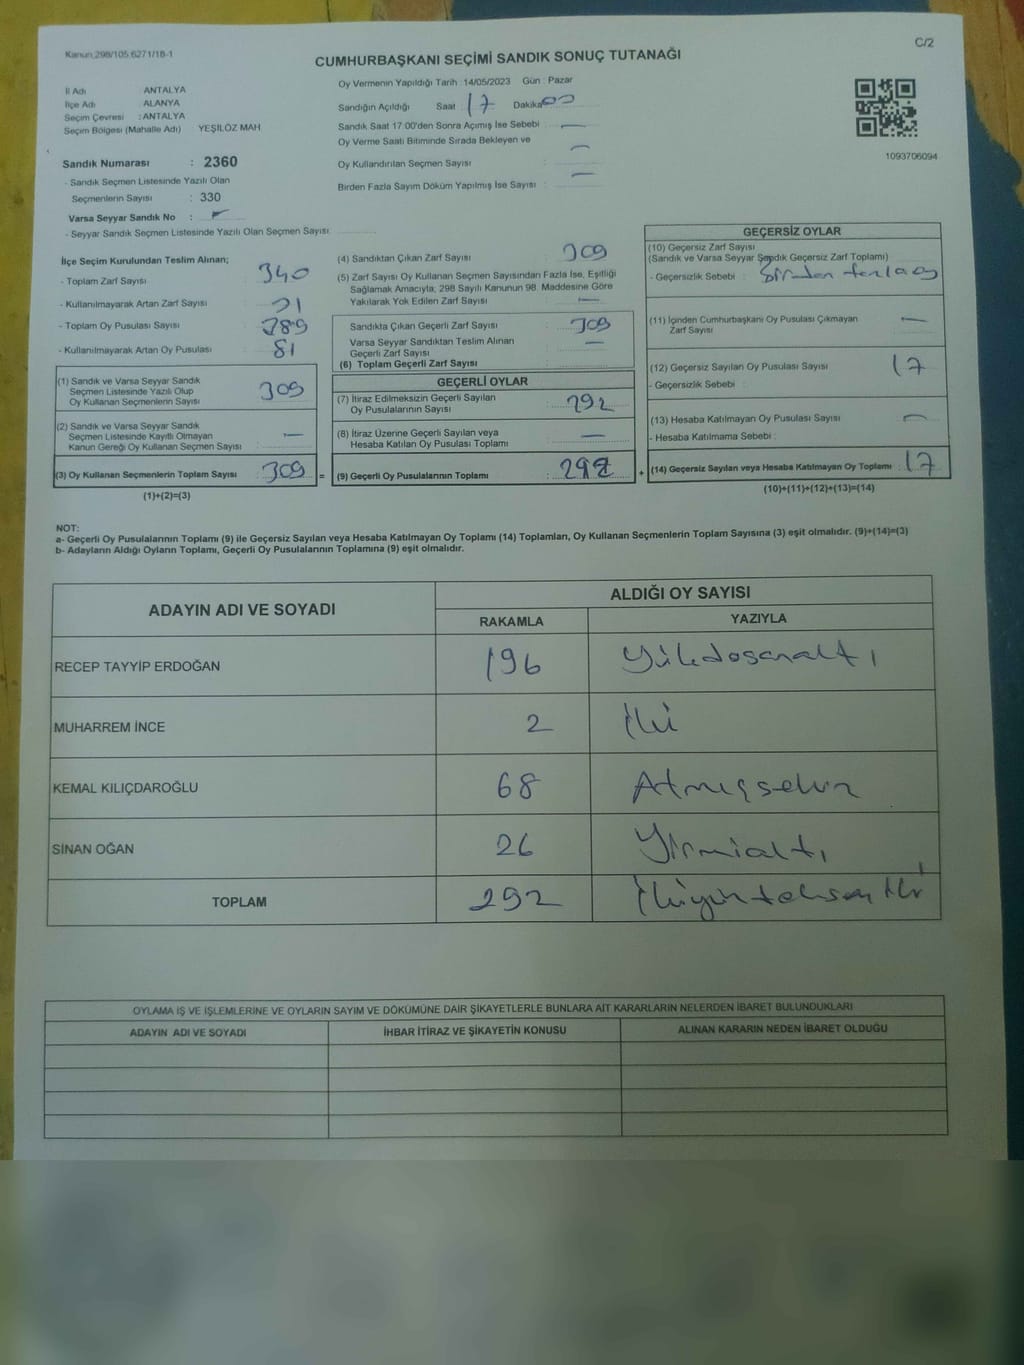 Kanun 298/105 6271/18-1
C/2
CUMHURBAŞKANI SEÇİMİ SANDIK SONUÇ TUTANAĞI
İl Adı ANTALYA
İlçe Adı ALANYA
Seçim Çevresi : ANTALYA
Seçim Bölgesi (Mahalle Adı) YEŞİLÖZ MAH
Sandık Numarası : 2360
- Sandık Seçmen Listesinde Yazılı Olan
Seçmenlerin Sayısı : 330
Varsa Seyyar Sandık No : -
- Seyyar Sandık Seçmen Listesinde Yazılı Olan Seçmen Sayısı
Oy Vermenin Yapıldığı Tarih : 14/05/2023 Gün : Pazar
Sandığın Açıldığı Saat 17 Dakika 00
Sandık Saat 17:00'den Sonra Açımış İse Sebebi : —
Oy Verme Saati Bitiminde Sırada Bekleyen ve
Oy Kullandırılan Seçmen Sayısı —
Birden Fazla Sayım Döküm Yapılmış İse Sayısı : —
1093706094
İlçe Seçim Kurulundan Teslim Alınan;
- Toplam Zarf Sayısı : 340
- Kullanılmayarak Artan Zarf Sayısı : 31
- Toplam Oy Pusulası Sayısı :
- Kullanılmayarak Artan Oy Pusulası : 81
(1) Sandık ve Varsa Seyyar Sandık
Seçmen Listesinde Yazılı Olup
Oy Kullanan Seçmenlerin Sayısı : 309
(2) Sandık ve Varsa Seyyar Sandık
Seçmen Listesinde Kayıtlı Olmayan
Kanun Gereği Oy Kullanan Seçmen Sayısı : —
(3) Oy Kullanan Seçmenlerin Toplam Sayısı : 309 =
(1)+(2)=(3)
(4) Sandıktan Çıkan Zarf Sayısı : 309
(5) Zarf Sayısı Oy Kullanan Seçmen Sayısından Fazla İse, Eşitliği
Sağlamak Amacıyla; 298 Sayılı Kanunun 98. Maddesine Göre
Yakılarak Yok Edilen Zarf Sayısı : —
Sandıkta Çıkan Geçerli Zarf Sayısı : 309
Varsa Seyyar Sandıktan Teslim Alınan
Geçerli Zarf Sayısı : —
(6) Toplam Geçerli Zarf Sayısı :
GEÇERLİ OYLAR
(7) İtiraz Edilmeksizin Geçerli Sayılan
Oy Pusulalarının Sayısı : 292
(8) İtiraz Üzerine Geçerli Sayılan veya
Hesaba Katılan Oy Pusulası Toplamı : —
(9) Geçerli Oy Pusulalarının Toplamı : 292 +
GEÇERSİZ OYLAR
(10) Geçersiz Zarf Sayısı
(Sandık ve Varsa Seyyar Sandık Geçersiz Zarf Toplamı)
- Geçersizlik Sebebi : Birden fazla oy
(11) İçinden Cumhurbaşkanı Oy Pusulası Çıkmayan
Zarf Sayısı : —
(12) Geçersiz Sayılan Oy Pusulası Sayısı : 17
- Geçersizlik Sebebi :
(13) Hesaba Katılmayan Oy Pusulası Sayısı : —
- Hesaba Katılmama Sebebi :
(14) Geçersiz Sayılan veya Hesaba Katılmayan Oy Toplamı : 17
(10)+(11)+(12)+(13)=(14)
NOT:
a- Geçerli Oy Pusulalarının Toplamı (9) ile Geçersiz Sayılan veya Hesaba Katılmayan Oy Toplamı (14) Toplamları, Oy Kullanan Seçmenlerin Toplam Sayısına (3) eşit olmalıdır. (9)+(14)=(3)
b- Adayların Aldığı Oyların Toplamı, Geçerli Oy Pusulalarının Toplamına (9) eşit olmalıdır.
ADAYIN ADI VE SOYADI
ALDIĞI OY SAYISI
RAKAMLA YAZIYLA
RECEP TAYYİP ERDOĞAN 196 Yükdosanaltı
MUHARREM İNCE 2 İki
KEMAL KILIÇDAROĞLU 68 Atmışsekiz
SİNAN OĞAN 26 Yirmialtı
TOPLAM 292 İkiyüzdoksan iki
OYLAMA İŞ VE İŞLEMLERİNE VE OYLARIN SAYIM VE DÖKÜMÜNE DAİR ŞİKAYETLERLE BUNLARA AİT KARARLARIN NELERDEN İBARET BULUNDUKLARI
ADAYIN ADI VE SOYADI İHBAR İTİRAZ VE ŞİKAYETİN KONUSU ALINAN KARARIN NEDEN İBARET OLDUĞU